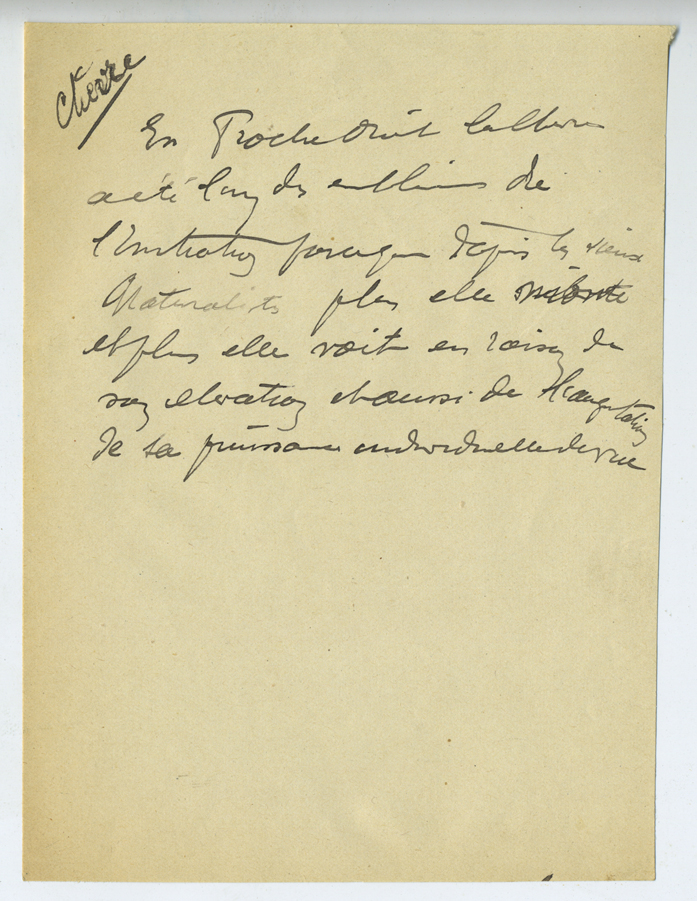 chèvre
En Proche Orient la chèvre
a été l'un des emblèmes de
l'Initiation parce que depuis les vieux
Naturalistes plus elle monte
et plus elle voit en raison de
son élévation et aussi de l'augmentation
de sa puissance individuelle de vue